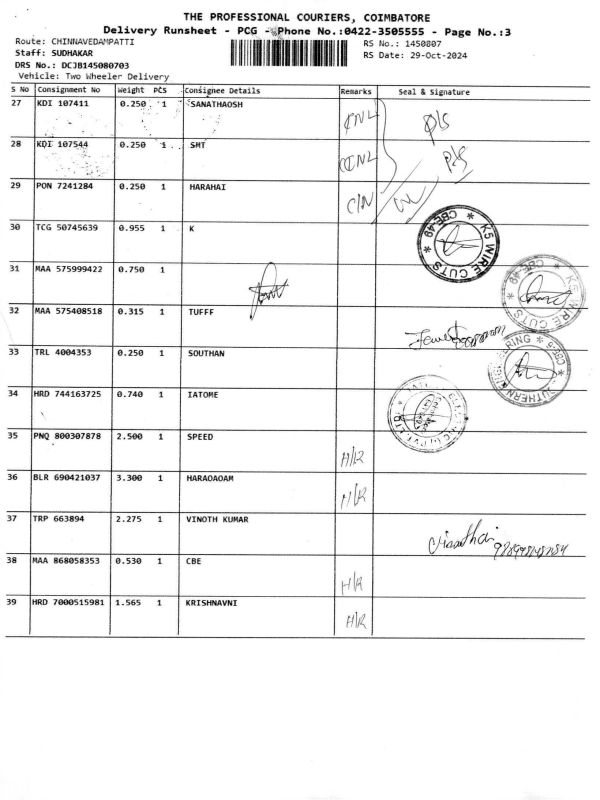 THE PROFESSIONAL COURIERS, COIMBATORE
Delivery Runsheet - PCG - Phone No.:0422-3505555 - Page No.:3
Route: CHINNAVEDAMPATTI
RS No.: 1450807
Staff: SUDHAKAR
RS Date: 29-Oct-2024
DRS No.: DCJB145080703
Vehicle: Two Wheeler Delivery
S No Consignment No Weight PCS Consignee Details Remarks Seal & Signature
27 KDI 107411 0.250 1 SANATHAOSH CNL P/S
28 KDI 107544 0.250 1 SMT CNL P/S
29 PON 7241284 0.250 1 HARAHAI C/N
30 TCG 50745639 0.955 1 K
K5 WIRE CUTS * CBE-49 *
31 MAA 575999422 0.750 1
K5 WIRE CUTS * CBE-49 *
32 MAA 575408518 0.315 1 TUFFF
33 TRL 4004353 0.250 1 SOUTHAN
34 HRD 744163725 0.740 1 IATOME
35 PNQ 800307878 2.500 1 SPEED H/R
36 BLR 690421037 3.300 1 HARAOAOAM H/R
37 TRP 663894 2.275 1 VINOTH KUMAR
38 MAA 868058353 0.530 1 CBE H/R
39 HRD 7000515981 1.565 1 KRISHNAVNI H/R